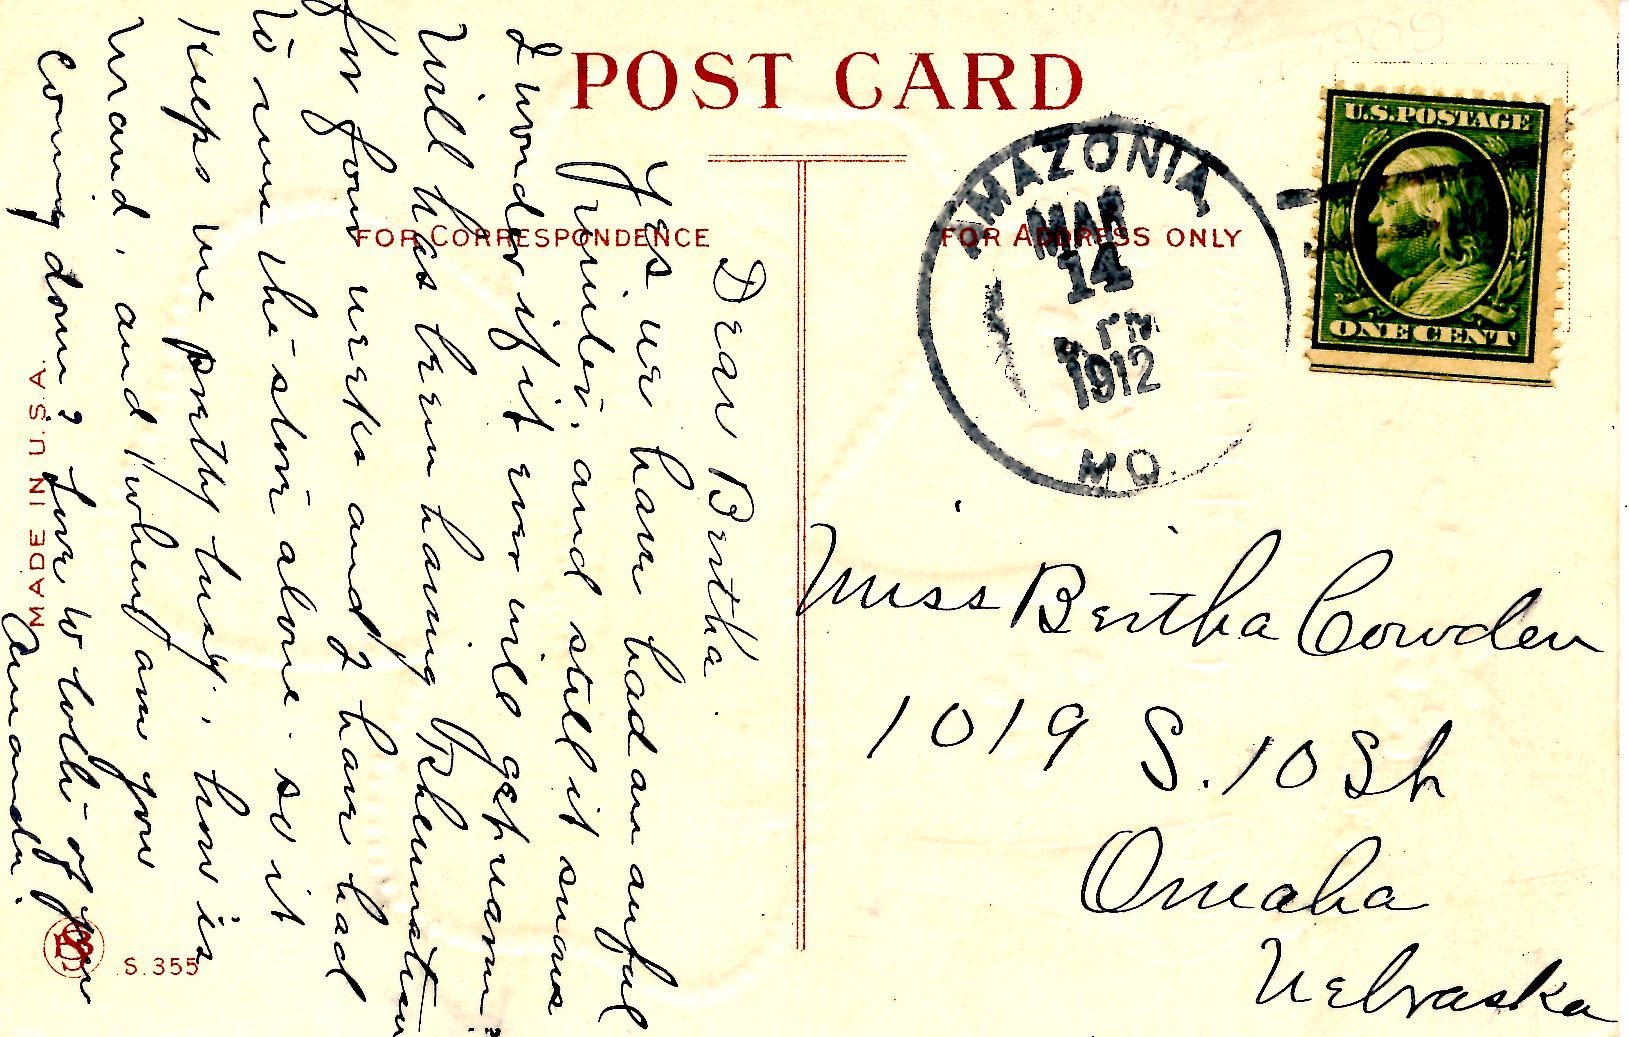 POST CARD
FOR CORRESPONDENCE
FOR ADDRESS ONLY
U.S. POSTAGE
ONE CENT
AMAZONIA
MAR
14
PM
1912
MO.
Miss Bertha Cowden
1019 S. 10 Sh
Omaha
Nebraska
Dear Bertha.
Yes we have had an awful
Winter, and still it snows
I wonder if it ever will get warm?
Will has been having Rheumatism
for four weeks and I have had
to run the store alone. so it
keeps me pretty busy. how is
and when are you
coming down? love to both of you
Amanda.
MADE IN U.S.A.
S. 355